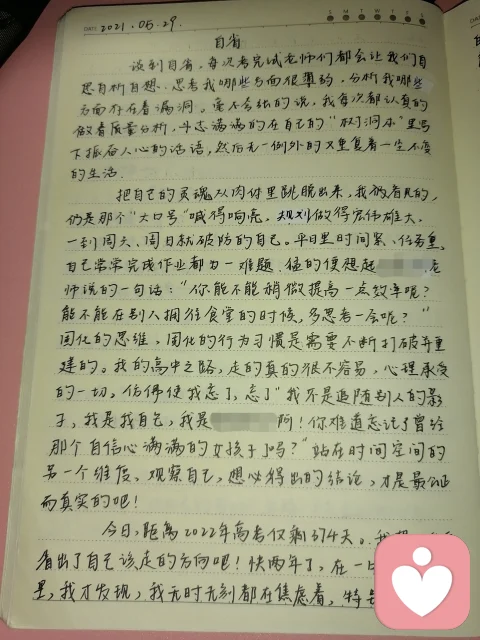 DATE 2021.05.29.
S M T W T F S
自省
谈到自省，每次考完试老师们都会让我们自
思自析自想，思考我哪些方面很薄弱，分析我哪些
方面存在着漏洞。毫不夸张的说，我每次都认真的
做着质量分析，斗志满满的在自己的“树洞本”里写
下振奋人心的话语，然后无一例外的又重复着一尘不变
的生活。
把自己的灵魂从肉体里跳脱出来，我所看见的，
仍是那个“大口号”喊得响亮，规划做得宏伟雄大，
一到周六、周日就破防的自己。平日里时间紧、任务重，
自己常常完成作业都为一难题，猛的便想起 老
师说的一句话：“你能不能稍微提高一点效率呢？
能不能在别人拥往食堂的时候，多思考一会呢？”
固化的思维，固化的行为习惯是需要不断打破并重
建的。我的高中之路，走的真的很不容易，心理承受
的一切，仿佛使我忘了，忘了“我不是追随别人的影
子，我是我自己，我是 啊！你难道忘记了曾经
那个自信心满满的女孩子了吗？”站在时间空间的
另一个维度，观察自己，想必得出的结论，才是最
而真实的吧！
今日，距离2022年高考仅剩 天。我
看出了自己该走的方向吧！快两年了，在一
里，我才发现，我无时无刻都在焦虑着，特